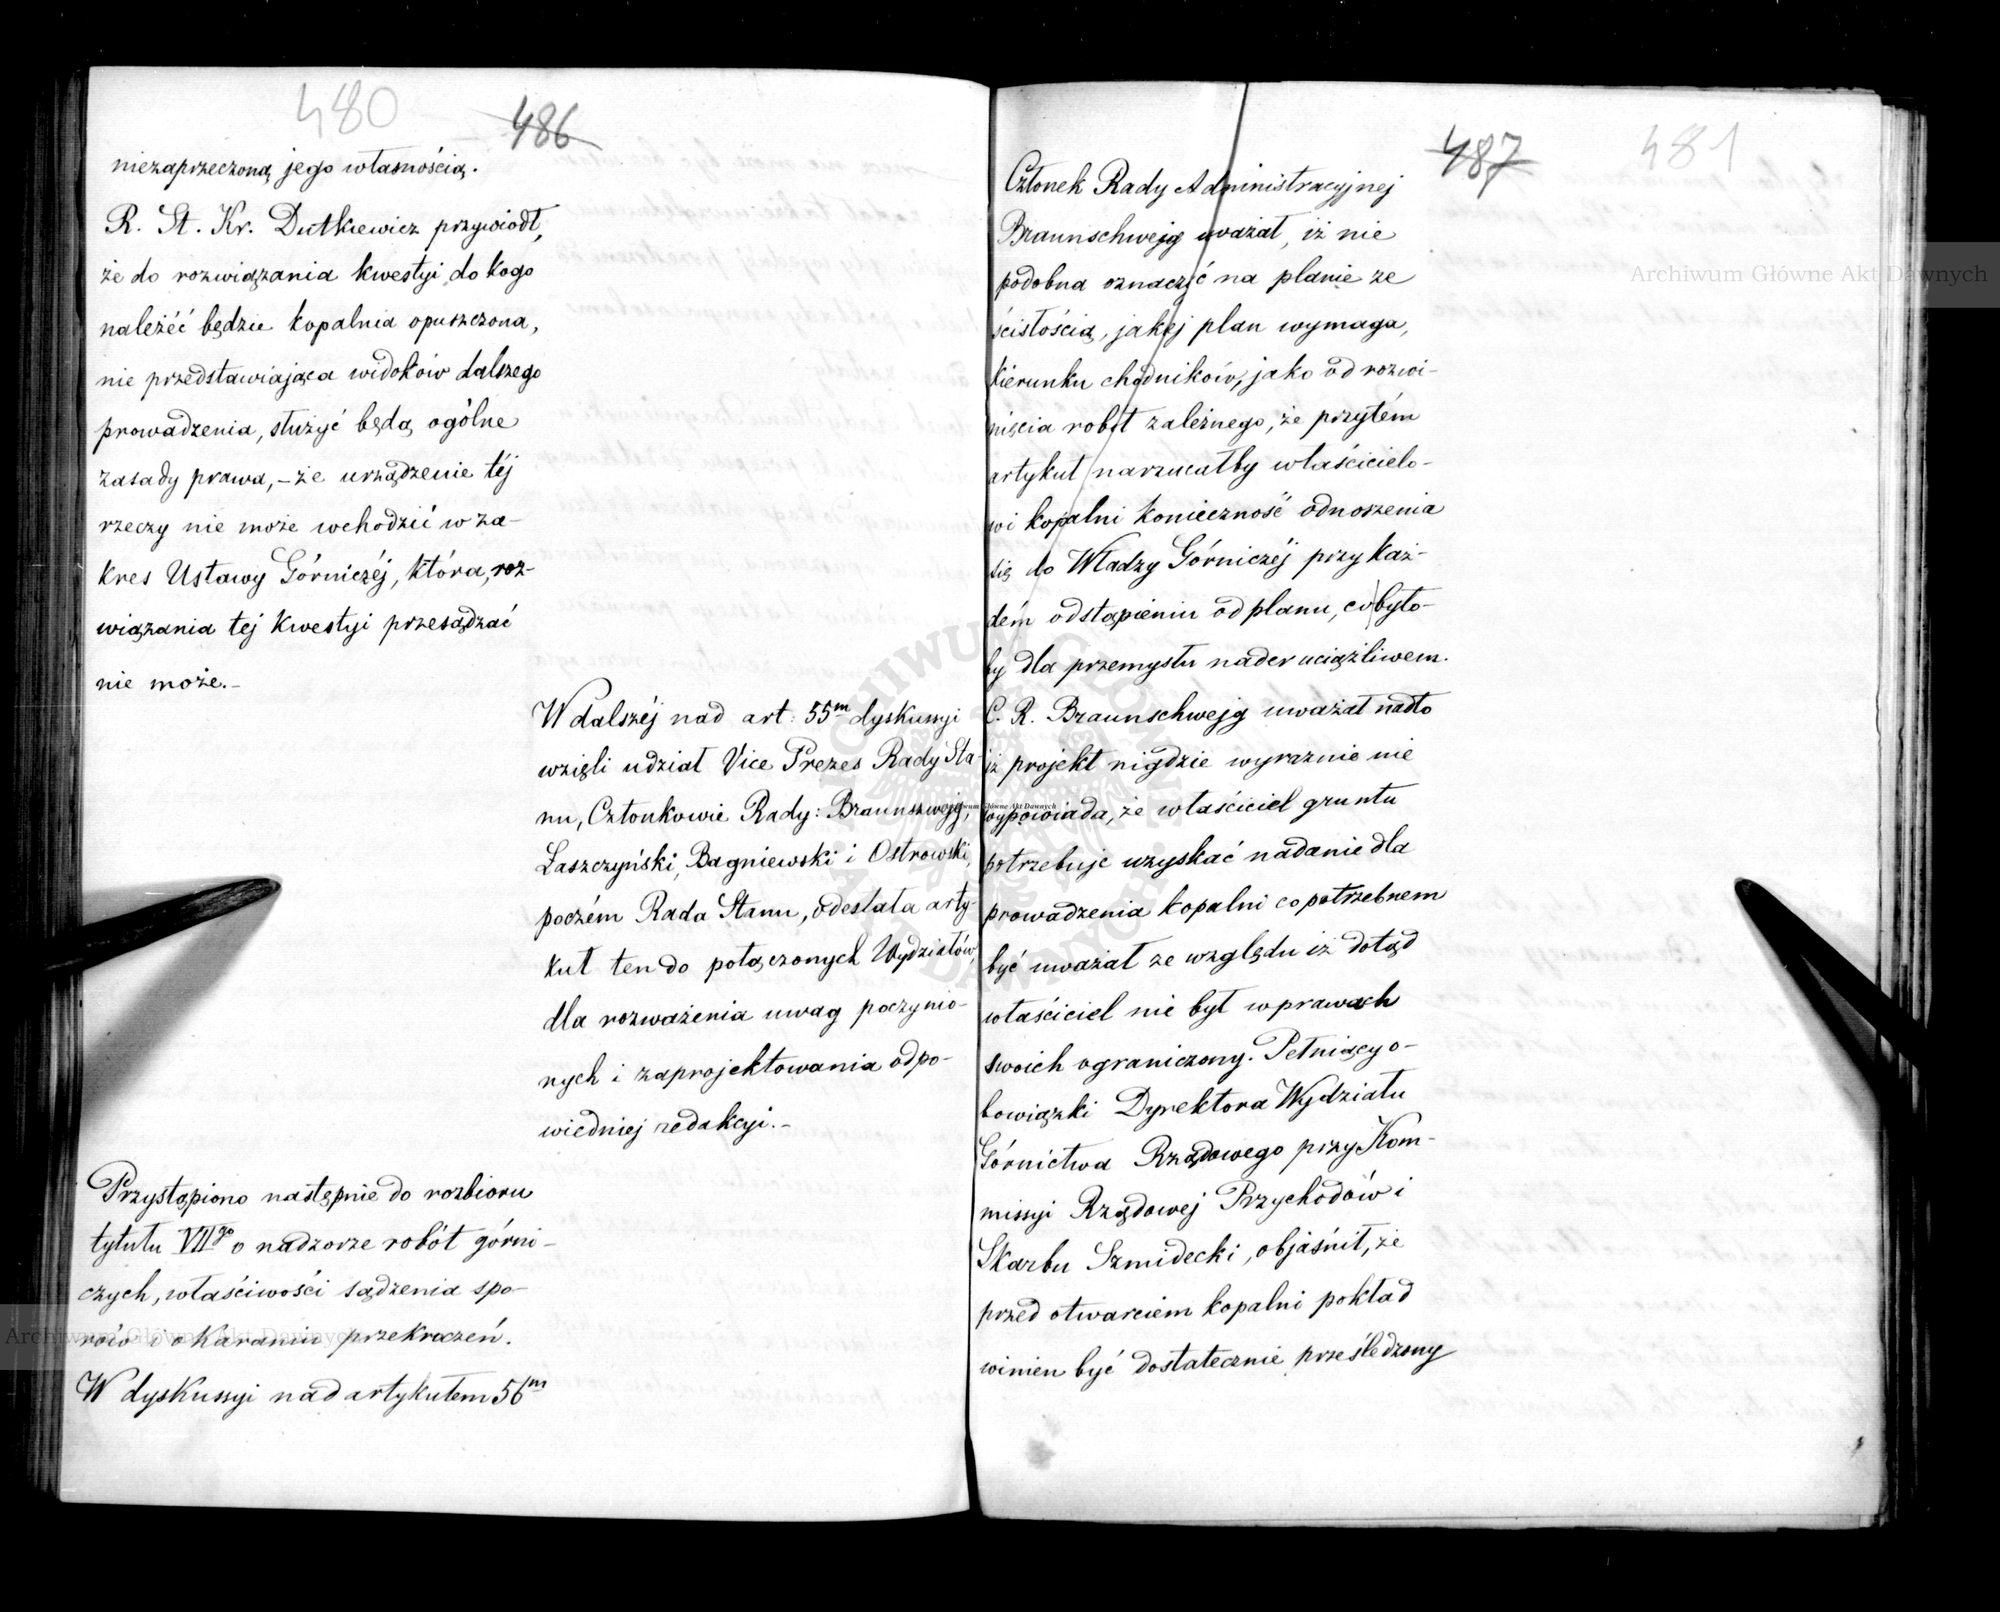 480
486
niezaprzeczoną jego własnością.
R. St. Kr. Dutkiewicz przywiódł,
że do rozwiązania kwestyi do kogo
należéć będzie kopalnia opuszczona,
nie przedstawiająca widoków dalszego
prowadzenia, służyć będą ogólne
zasady prawa, – że urządzenie téj
rzeczy nie może wchodzić w za-
kres Ustawy Górniczéj, która, roz-
wiązania téj kwestyi przesądzać
nie może. –
W dalszéj nad art: 55m dyskussyi
wzięli udział Vice Prezes Rady Sta-
nu, Członkowie Rady: Braunszwejg,
Łaszczyński, Bagniewski i Ostrowski,
poczém Rada Stanu, odesłała arty-
kuł ten do połączonych Wydziałów,
dla rozważenia uwag poczynio-
nych i zaprojektowania odpo-
wiedniej redakcyi. –
Przystąpiono następnie do rozbioru
tytułu VIIgo o nadzorze robót górni-
czych, właściwości sądzenia spo-
rów i o karaniu przekroczeń.
W dyskussyi nad artykułem 56m
487
481
Członek Rady Administracyjnej
Braunschwejg uważał, iż nie
podobna oznaczyć na planie ze
ścisłością, jakéj plan wymaga,
kierunku chodników, jako od rozwi-
nięcia robót zależnego, że przytém
artykuł narzucałby właścicielo-
wi kopalni konieczność odnoszenia
się do Władzy Górniczéj przy każ-
dém odstąpieniu od planu, co było-
by dla przemysłu nader uciążliwem.
C. R. Braunschwejg uważał nadto
iż projekt nigdzie wyraznie nie
wypowiada, że właściciel gruntu
potrzebuje uzyskać nadanie dla
prowadzenia kopalni co potrzebnem
być uważał ze względu iż dotąd
właściciel nie był w prawach
swoich ograniczony. Pełniący o-
bowiązki Dyrektora Wydziału
Górnictwa Rządowego przy Kom-
missyi Rządowej Przychodów i
Skarbu Szmidecki, objaśnił, że
przed otwarciem kopalni pokład
winien być dostatecznie prześledzony
Archiwum Główne Akt Dawnych
Archiwum Główne Akt Dawnych
Archiwum Główne Akt Dawnych
ARCHIWUM GŁÓWNE AKT DAWNYCH